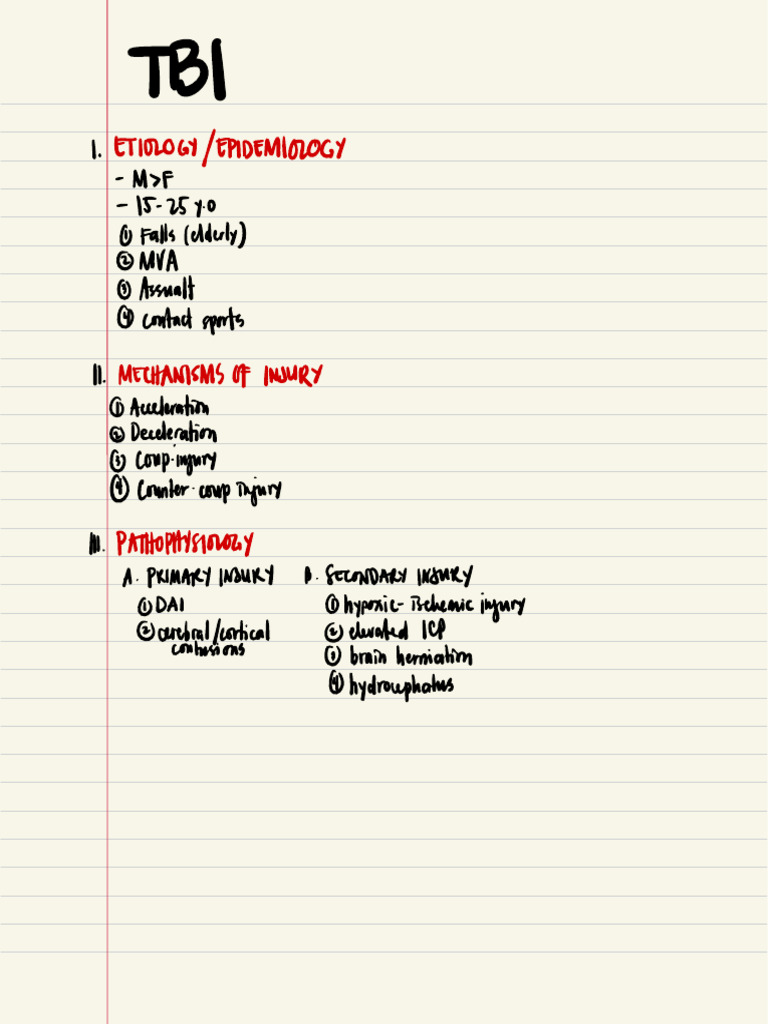 TBI
I. ETIOLOGY/EPIDEMIOLOGY
- M>F
- 15-25 y.o
① Falls (elderly)
② MVA
③ Assualt
④ contact sports
II. MECHANISMS OF INJURY
① Acceleration
② Deceleration
③ Coup-injury
④ Counter-coup injury
III. PATHOPHYSIOLOGY
A. PRIMARY INJURY B. SECONDARY INJURY
① DAI ① hypoxic-ischemic injury
② cerebral/cortical ② elevated ICP
contusions ③ brain herniation
④ hydrocephalus